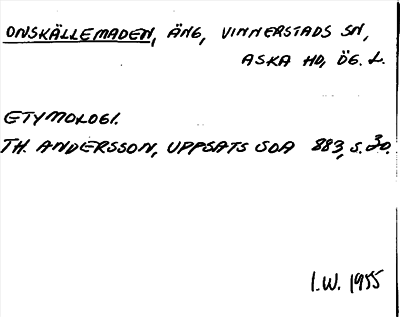 ONSKÄLLEMADEN, ÄNG, VINNERSTADS SN,
ASKA HD, ÖG. L.
ETYMOLOGI.
TH. ANDERSSON, UPPSATS SOA 883, S. 30.
I.W. 1955